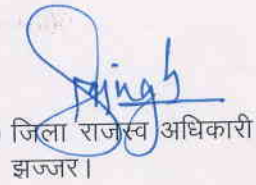 Singh
जिला राजस्व अधिकारी
झज्जर।